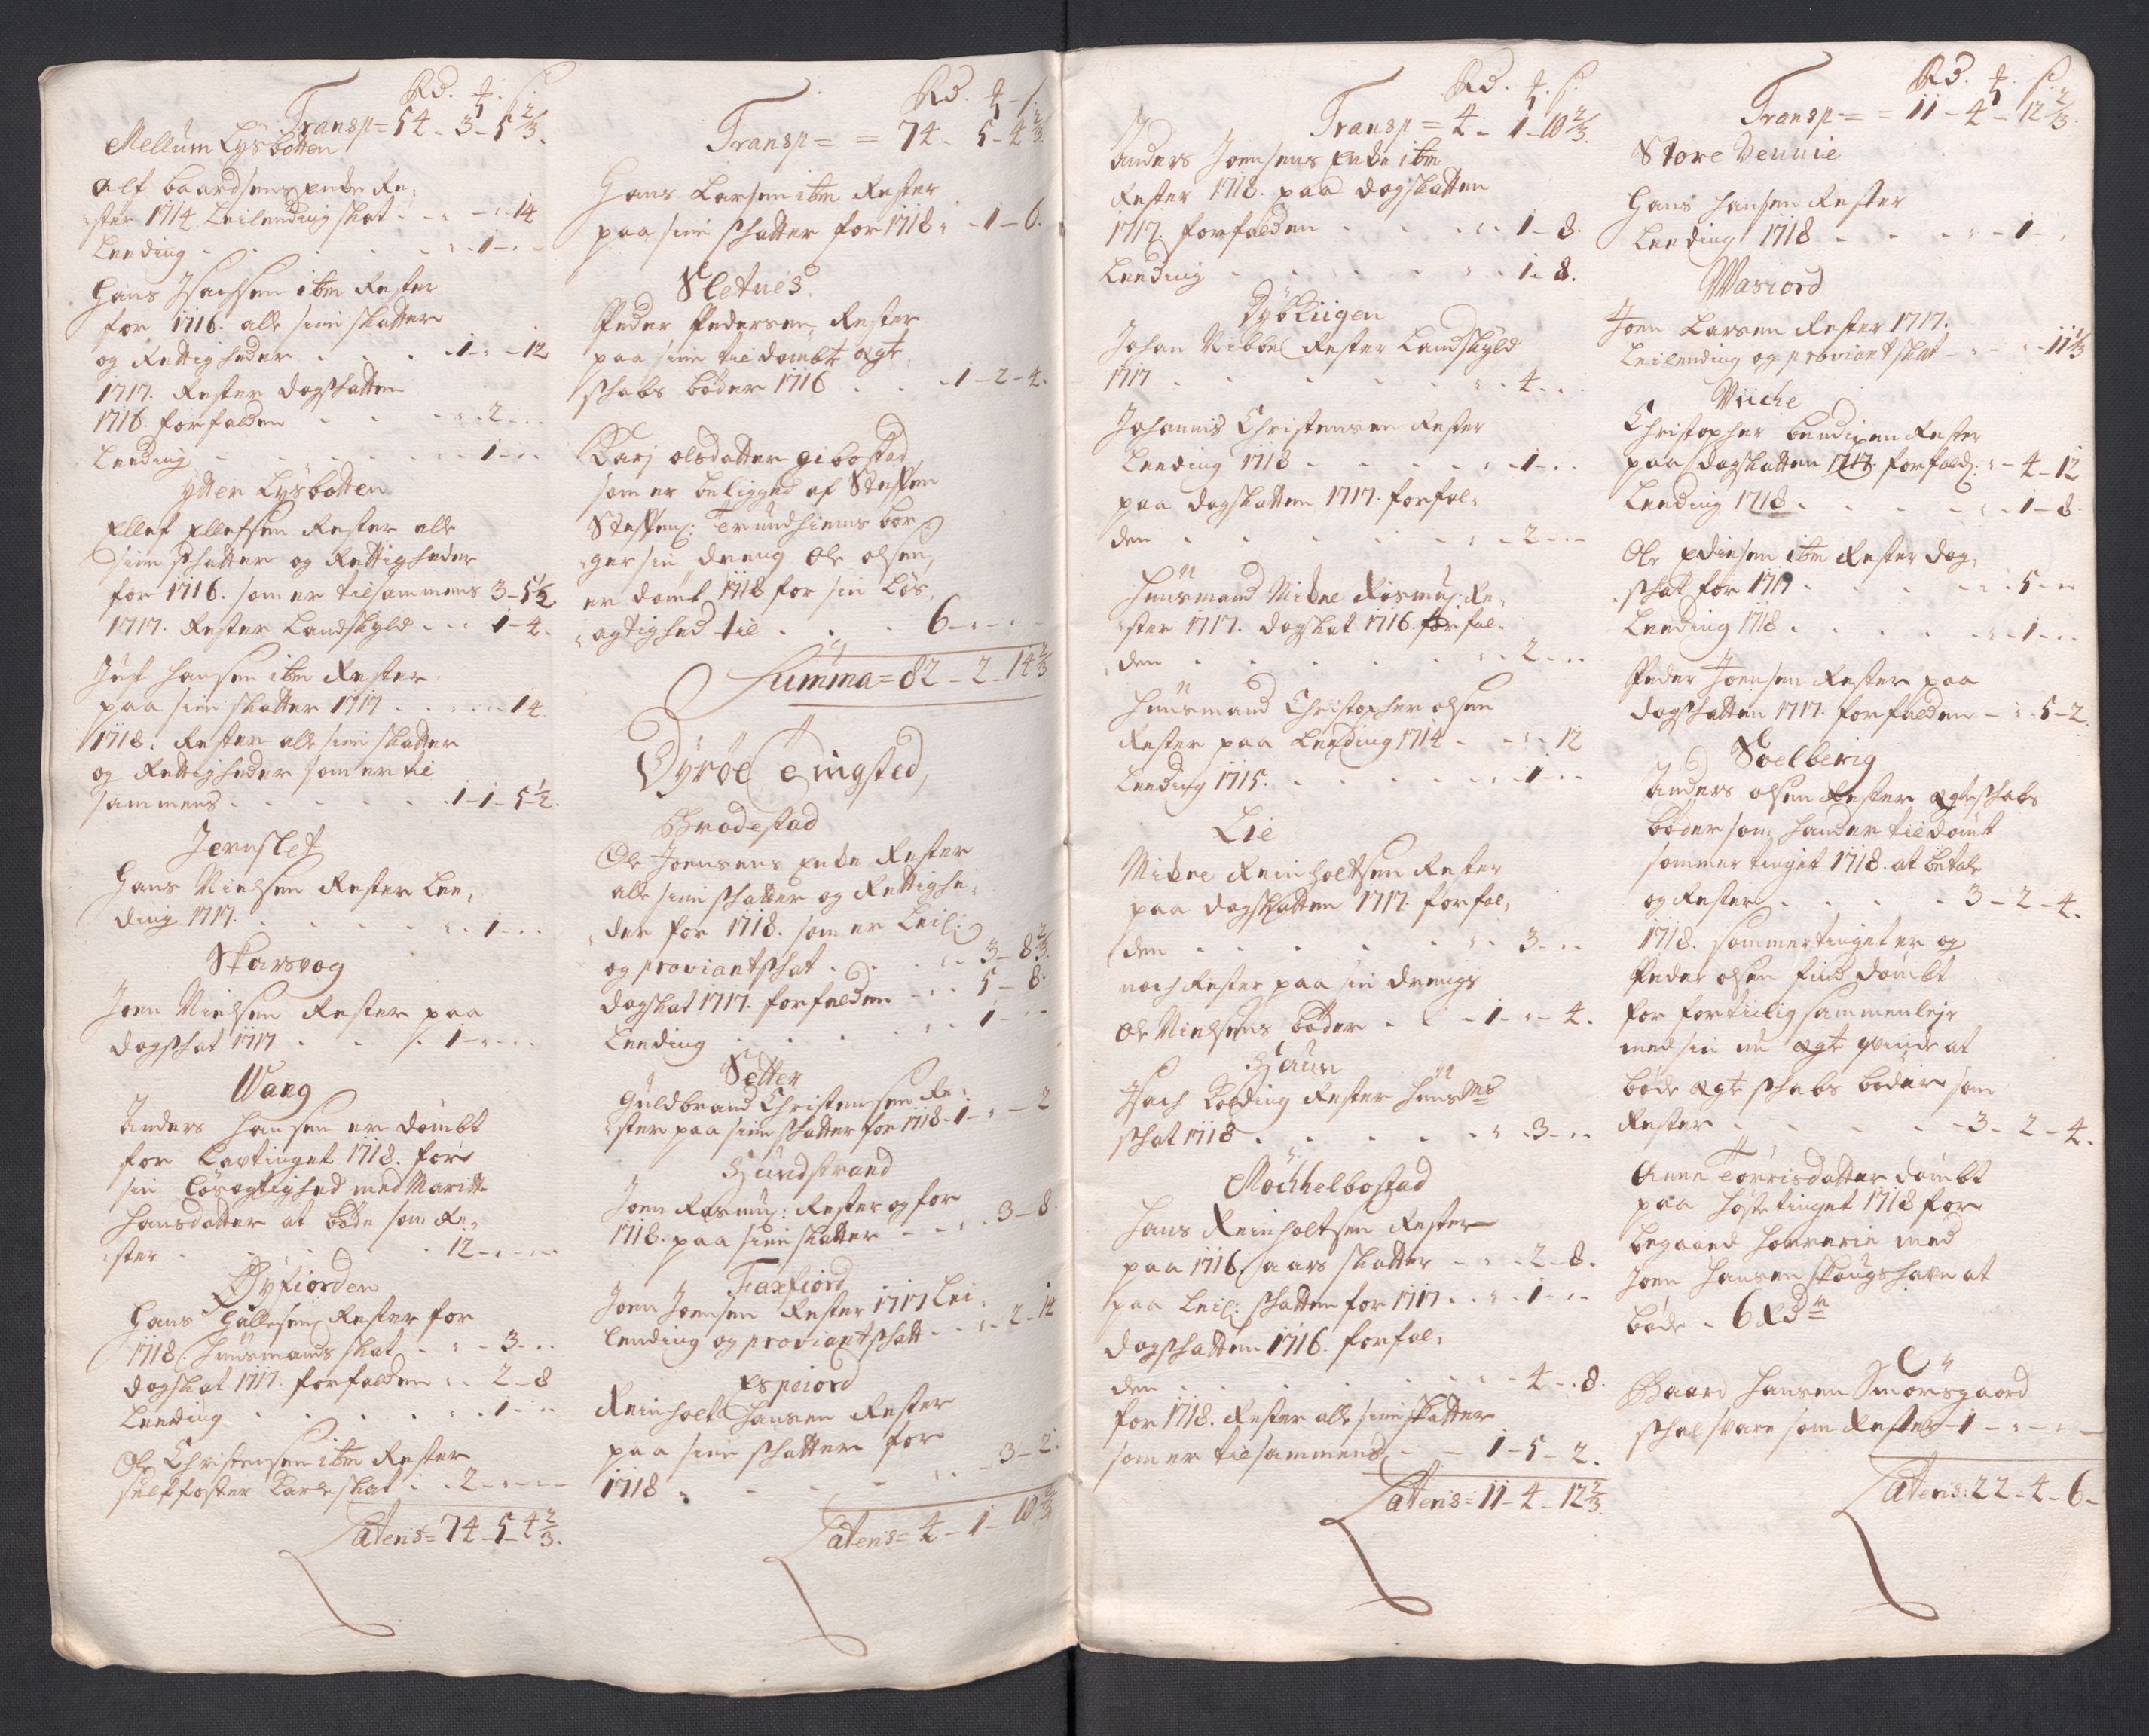 Rd. ℔. ß.
Transp = 54 - 3 - 5 2/3.
Mellum Lysbotten
Alf baardsens Enke Re:
ster 1714 Leilending skat - - - - 14
Leeding - - - - 1 - -
Hans Isachsen ibm Rester
for 1716. alle sine skatter
og Rettigheder - - - 1 - - 12
1717. Rester dogskatten
1716. forfalden - - - 2 - -
Leeding - - - - 1 - -
Ytter Lysbotten
Ellef Ellefsen Rester alle
sine skatter og Rettigheder
for 1716. som er tilsammens 3 - 5 1/2
1717. Rester Landskyld - - 1 - 4.
Just Hansen ibm Rester
paa sine skatter 1717 - - - 14.
1718. Rester alle sine skatter
og Rettigheder som er til
sammens - - - - 1 - 1 - 5 1/2.
Jernslet
Hans Nielsen Rester Lee,
ding 1717. - - - - 1 - -
Skarsvog
Joen Nielsen Rester paa
dogskat 1717 - - - 1 - - -
Wang
Anders Hansen er dømbt
for Lavtinget 1718. for
sin Løsagtighed med Maritte
Hansdatter at bøde som Re,
ster - - - - 12 - - -
Øyfiorden
Hans Gullesen Rester for
1718. Huusmands skat - - - 3 - -
dogskat 1717. forfalden - - 2 - 8
Leeding - - - - 1 - -
Ole Christensen ibm Rester
Karls skat - - 2 - - -
Latens = 74 - 5 - 4 2/3.
Rd. ℔ - ß.
Transp = = 74 - 5 - 4 2/3.
Hans Larsen ibm Rester
paa sine skatter for 1718 - - 1 - 6.
Sletnes
Peder Pedersen, Rester
paa sine tildømbte ægte,
skabs bøder 1716 - - - 1 - 2 - 4.
Karj olsdatter gibostad,
som er beligged af Steffen
Steffens: Trundhiems bor,
ger sin dreng Ole olsen,
er dømt 1718 for sin Løs,
agtighed til - - - 6 - - -
Summa = 82 - 2 - 14 2/3
Dyrøe Tingsted,
Brodestad
Ole Joensens Enke Rester
alle sine skatter og Rettighe,
der for 1718. som er Leil:
og proviantskat - - - - 3 - 8 2/3.
dogskat 1717. forfalden - - - 5 - 8.
Leeding - - - - 1 - -
Setter
Guldbrand Christensen Re,
ster paa sine skatter for 1718 - 1 - - - 2
Hundstrand
Joen Rasmus: Rester og for
1718. paa sine skatter - - - - 3 - 8.
Faxfiord
Joen Joensen Rester 1717 Lei,
lending og proviantskatt - - - 2 - 14
Espeiord
Reinholt Hansen Rester
paa sine skatter for
1718 - - - - - 3 - 2.
Latens = 4 - 1 - 10 2/3
Rd. ℔. ß.
Transp = 4 - 1 - 10 2/3.
Anders Joensens Enke ibm
Rester 1718. paa dogskatten
1717. forfalden - - - - 1 - 8.
Leeding - - - - - 1 - 8.
Dybkiigen
Johan Ribbel Rester Landskyld
1717 - - - - - - 4 - -
Johannis Christensen Rester
Leeding 1718 - - - - - 1 - -
paa dogskatten 1717. forfal,
den - - - - - - 2 - -
Huusmand Mickel Rasmus: Re,
ster 1717. dogskat 1716. forfal,
den - - - - - - 2 - -
Huusmand Christopher olsen
Rester paa Leeding 1714 - - - 12
Leeding 1715. - - - - - 1 - -
Lie
Mickel Reinholtsen Rester
paa dogskatten 1717. forfal,
den - - - - - 3 - -
noch Rester paa sin drengs
Ole Nielsens bøder - - - 1 - - 4.
Haun
Isach Colding Rester Huusms
skat 1718 - - - - - 3 - -
Møchkelbostad
Hans Reinholtsen Rester
paa 1716 aars skatter - - - 2 - 8.
paa Leil: skatten for 1717 - - - 1 - -
dogskatten 1716. forfal,
den - - - - - - 4 - 8.
for 1718. Rester alle sine skatter
som er tilsammens - - 1 - 5 - 2.
Latens = 11 - 4 - 12 2/3.
Rd. ℔. ß.
Transp = = 11 - 4 - 12 2/3.
Store Vennie
Hans Hansen Rester
Leeding 1718 - - - - 1 - -
Wasiord
Joen Larsen Rester 1717.
Leilending og proviantskat - - - 11 1/3
Viiche
Christopher Bendixen Rester
paa dogskatten 1717. forfald: - - 4 - 12
Leeding 1718 - - - - - 1 - 8.
Ole Edissen ibm Rester dog,
skat for 1717 - - - - 5 - -
Leeding 1718 - - - - - 1 - - -
Peder Joensen Rester paa
dogskatten 1717. forfalden - - - 5 - 2.
Soelberig
Anders olsen Rester ægteskabs
bøder som hand er tildømt
sommertinget 1718. at betale
og Rester - - - - 3 - 2 - 4.
1718. sommertinget er og
Peder olsen dømbt
for fortiilig sammenleje
med sin nu ægte qvinde at
bøde ægteskabs bøder som
Rester - - - - - 3 - 2 - 4.
Anne Torrisdatter dømbt
paa Høstetinget 1718 for
begaaed Horrerie med
Joen Hansen Skougshavn at
bøde - 6 Rdr
Baard Hansen Smorsgaard
skal svare som Rester - 1 - - - -
Latens: 22 - 4 - 6 -